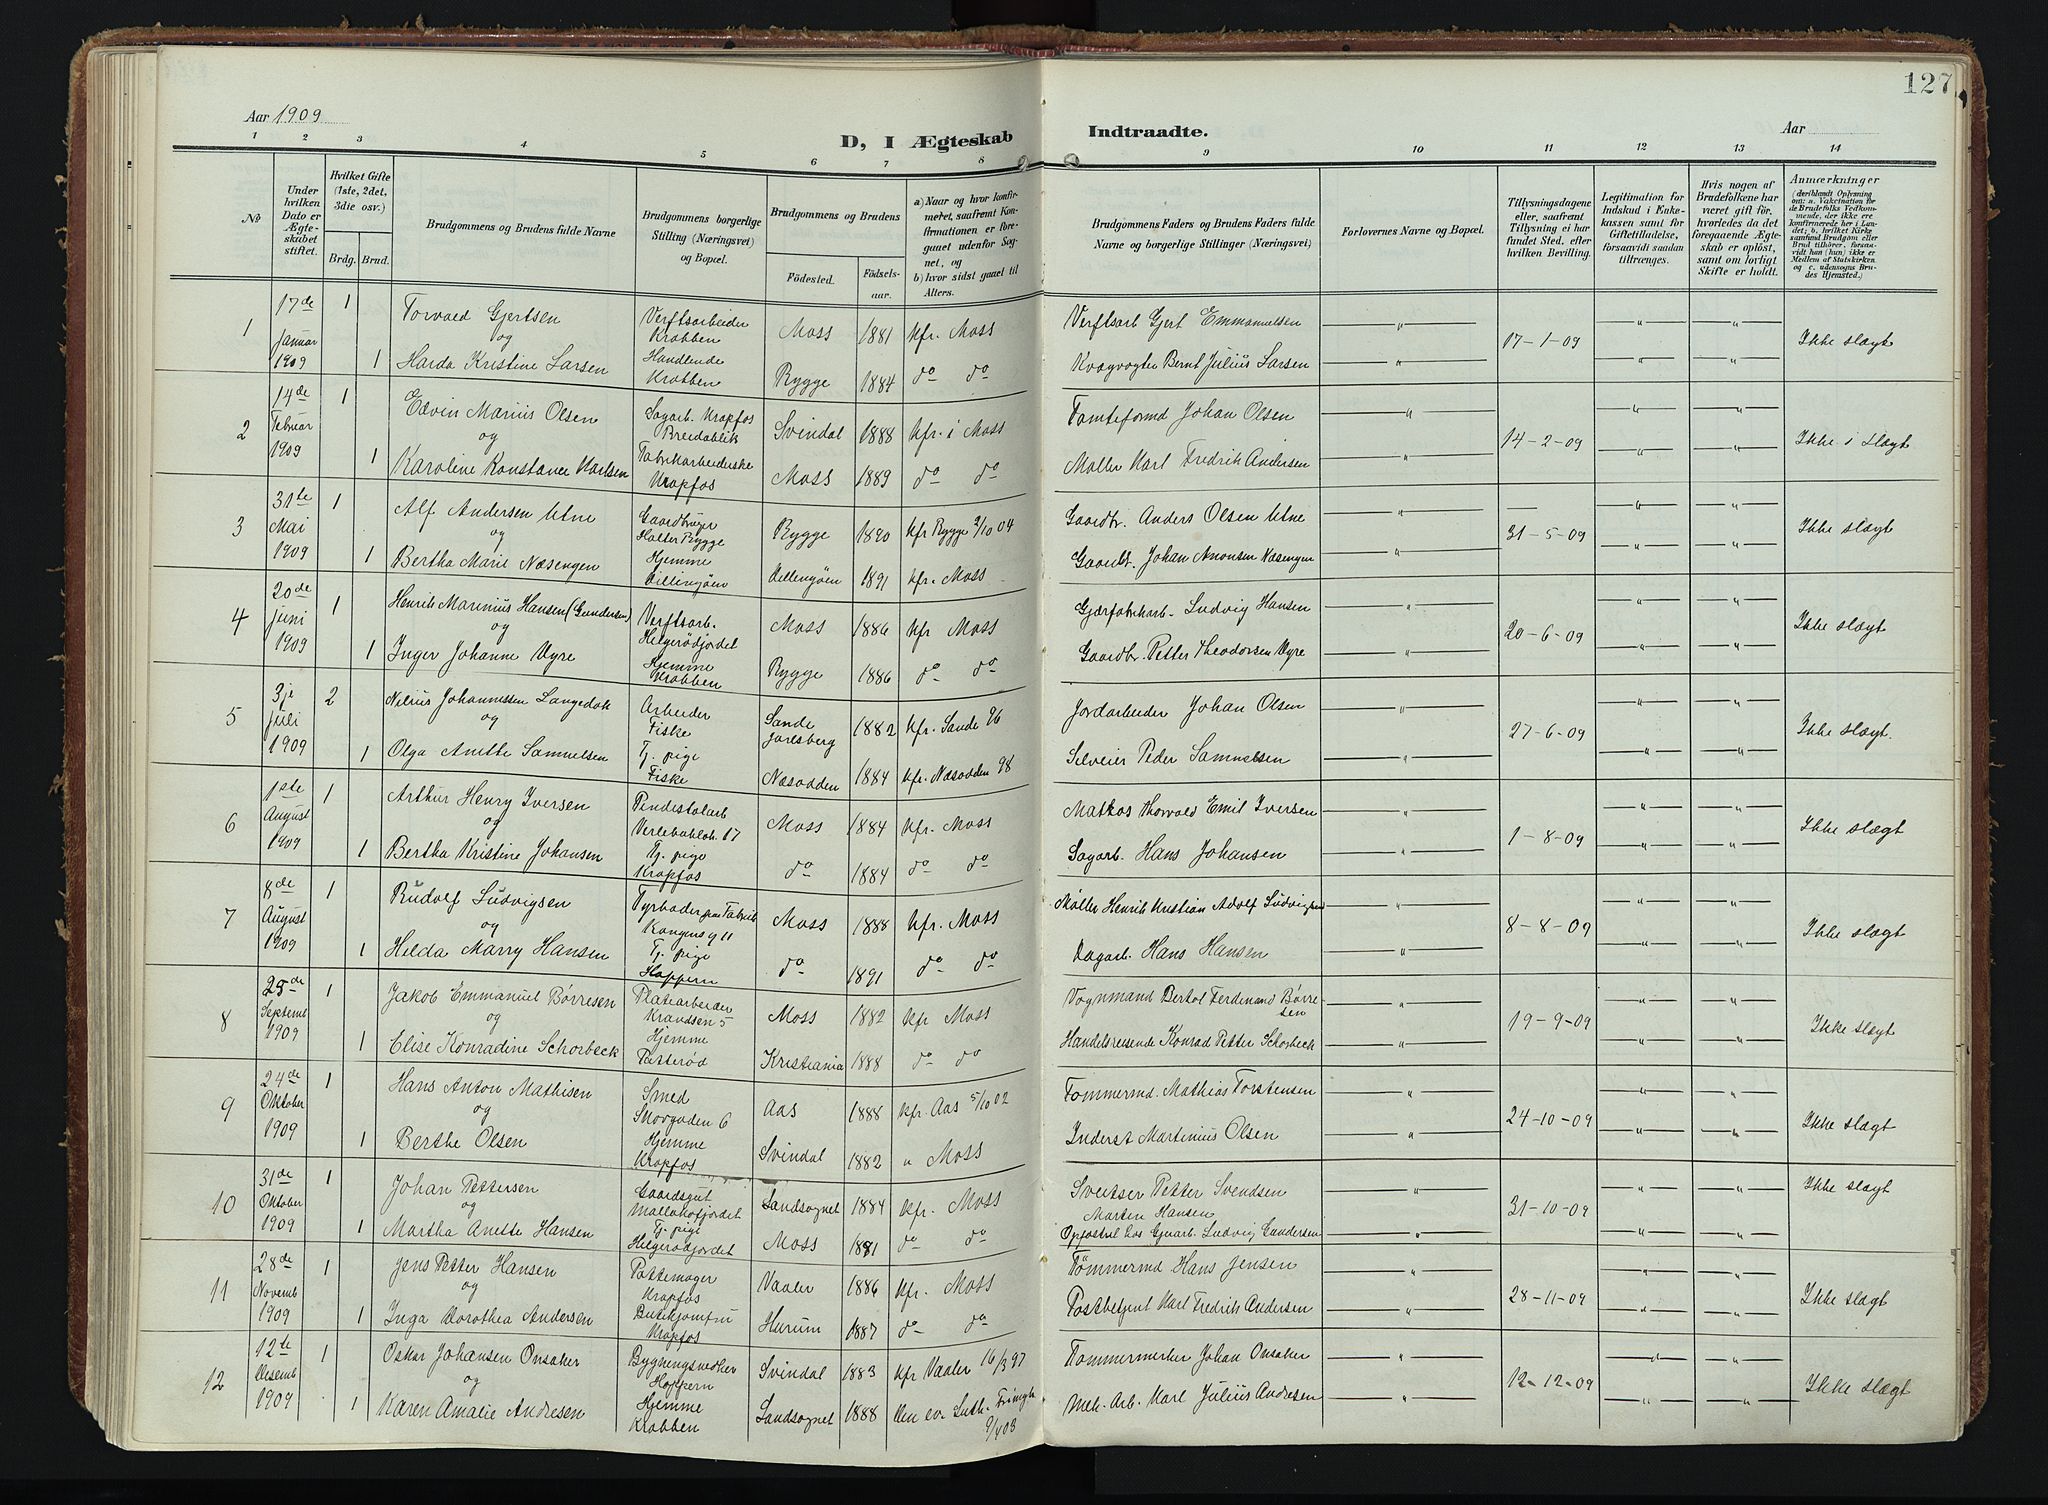 127
Aar 1909
D, I Ægteskab Indtraadte.
Aar
1 2 3 4 5 6 7 8 9 10 11 12 13 14
No
Under hvilken Dato er Ægteskabet stiftet.
Hvilket Gifte (1ste, 2det, 3die osv.)
Brdg. Brud.
Brudgommens og Brudens fulde Navne
Brudgommens borgerlige Stilling (Næringsvei) og Bopæl.
Brudgommens og Brudens
Fødested. Fødselsaar.
a) Naar og hvor konfirmeret, saafremt Konfirmationen er foregaaet udenfor Sognet, og
b) hvor sidst gaaet til Alters.
Brudgommens Faders og Brudens Faders fulde Navne og borgerlige Stillinger (Næringsvei)
Forlovernes Navne og Bopæl.
Tillysningsdagene eller, saafremt Tillysning ei har fundet Sted, efter hvilken Bevilling.
Legitimation for Indskud i Enkekassen samt for Giftetilladelse, forsaavidt saadan tiltrænges.
Hvis nogen af Brudefolkene har været gift før, hvorledes da det foregaaende Ægteskab er opløst, samt om lovligt Skifte er holdt.
Anmærkninger
(deriblandt Oplysning om: a. Vakcination for de Brudefolks Vedkommende, der ikke ere konfirmerede her i Landet; b. hvilket Kirkesamfund Brudgom eller Brud tilhører, forsaavidt han (hun) ikke er Medlem af Statskirken og c. udensogns Brudes Hjemsted.)
1 17de Januar 1909 1 Torvald Gjertsen Verftsarbeider Krabben Moss 1881 kfr. Moss Verftsarb Gjert Emmanuelsen " 17-1-09 " " Ikke slægt
og
1 Harda Kristine Larsen Handlende Krabben Rygge 1884 do do Kvægvogter Bernt Julius Larsen " " "
2 14de Februar 1909 1 Edvin Marius Olsen Sagarb. Krapfos Breidablik Svindal 1888 kfr. i Moss Tomteformd Johan Olsen " 14-2-09 " " Ikke i slægt
og
1 Karoline Konstance Karlsen Fabrikarbeiderske Krapfos Moss 1889 do do Møller Karl Fredrik Andersen " " "
3 31te Mai 1909 1 Alf Andersen Utne Gaardbruger Halter Rygge Rygge 1890 kfr Rygge 2/10 04 Gaardbr. Anders Olsen Utne " 31-5-09 " " Ikke slægt
og
1 Bertha Marie Næsengen Hjemme Dillingøen Dillingøen 1891 kfr. Moss Gaardbr. Johan Amonsen Næsengen " " "
4 20de Juni 1909 1 Henrik Marinius Hansen (Gundersen) Verftsarb. Helgerødjordet Moss 1886 kfr Moss Gjærfabrikarb. Ludvig Hansen " 20-6-09 " " Ikke slægt
og
1 Inger Johanne Dyre Hjemme Krabben Rygge 1886 do do Gaardbr. Petter Theodorsen Dyre " " "
5 3je Juli 1909 2 Nilius Johannessen Langedok Arbeider Fiske Sande Jarlsberg 1882 kfr. Sande 96 Jordarbeider Johan Olsen " 27-6-09 " " Ikke slægt.
og
1 Olga Anette Samuelsen Tj. pige Fiske Næsodden 1884 kfr. Næsodden 98 Selveier Peder Samuelsen " " "
6 1ste August 1909 1 Arthur Henry Iversen Verlebakken 17 Moss 1884 kfr. Moss Matros Thorvald Emil Iversen " 1-8-09 " " Ikke slægt
og
1 Bertha Kristine Johansen Tj. pige Krapfos do 1884 do do Sagarb. Hans Johansen " " "
7 8de August 1909 1 Rudolf Ludvigsen Fyrbøder Kongensg 11 Moss 1888 kfr. Moss Møller Henrik Kristian Adolf Ludvigsen " 8-8-09 " " Ikke slægt
og
1 Helda Marry Hansen Tj. pige Hoppern do 1891 do do Dagarb. Hans Hansen " " "
8 25de Septemb 1909 1 Jakob Emmanuel Børresen Platearbeider Krandsen 5 Moss 1882 kfr Moss Vognmand Bertol Ferdinand Børresen " 19-9-09 " " Ikke slægt
og
1 Elise Konradine Schorbeck Hjemme Patterød Kristiania 1888 do do Handelsreisende Konrad Petter Schorbeck " " "
9 24de Oktober 1909 1 Hans Anton Mathisen Smed Skovgaden 6 Aas 1888 kfr. Aas 5/10 02 Tømmermd. Mathias Torstensen " 24-10-09 " " Ikke slægt
og
1 Berthe Olsen Hjemme Krapfos Svindal 1882 " Moss Inderst Martinius Olsen " " "
10 31de Oktober 1909 1 Johan Pettersen Gaardsgut Mallakofjordet Sandsognet 1884 kfr. Moss Sveitser Petter Svendsen " 31-10-09 " " Ikke slægt
og
1 Martha Anette Hansen Tj. pige Helgerødjordet Moss 1881 do do Morten Hansen
Opfostret hos Gjærarb. Ludvig Gundersen " " "
11 28de Novemb 1909 1 Jens Petter Hansen Pottemager Krapfos Vaaler 1886 kfr. Moss Tømmermd Hans Jensen " 28-11-09 " " Ikke slægt
og
1 Inga Dorothea Andersen Butikjomfru Krapfos Hurum 1887 do do Postbetjent Karl Fredrik Andersen " " "
12 12te Desemb 1909 1 Oskar Johansen Onsaker Bygningssnedker Hoppern Svindal 1883 kfr Vaaler 16/3 97 Tømmermerker Johan Onsaker " 12-12-09 " " Ikke slægt
og
1 Karen Amalie Andresen Hjemme Krabben Sandsognet 1888 Den ev. Luth. Frimgh 9/4 03 Mek. Arb. Karl Julius Andresen " " "